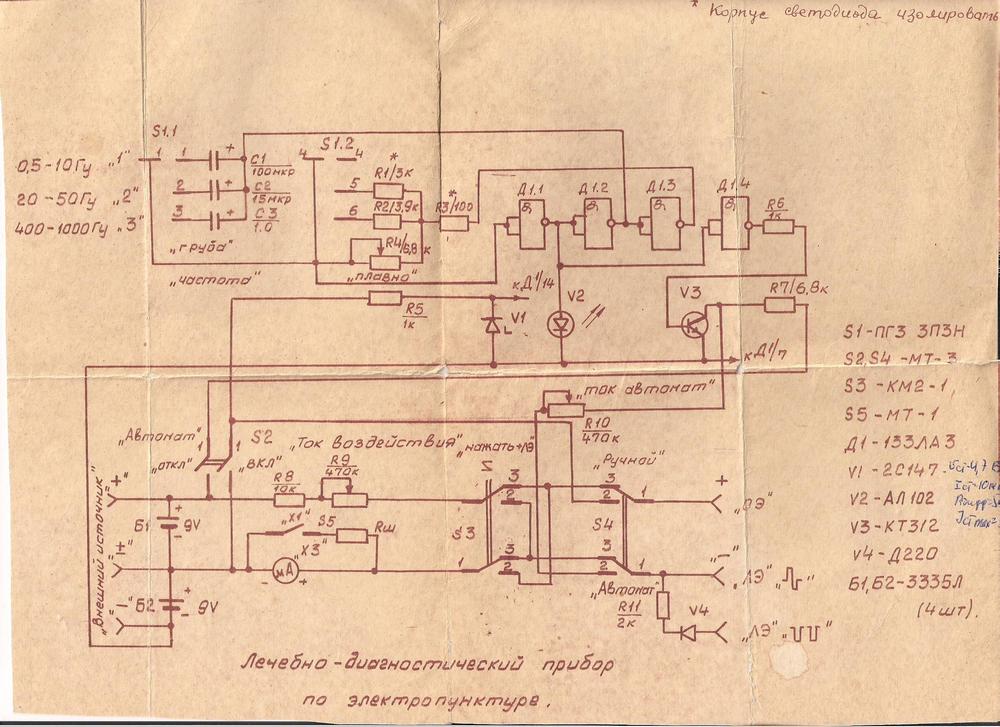 * Корпус светодиода изолировать
S1.1
S1.2
0,5-10Гц „1"
20-50Гц „2"
400-1000Гц „3"
1 1
2
3
+
+
+
C1
100мкр
C2
15мкр
C3
1.0
„груба"
„частота"
4 4
5
6
*
R1/3к
R2/3,9к
R4/6,8к
„плавно"
*
R3/100
Д1.1
Д1.2
Д1.3
Д1.4
&
&
&
&
R6
1к
R5
1к
к Д1/14
V1
V2
V3
R7/6,8к
к Д1/7
„ток автомат"
R10
470к
S1-ПГ3 3П3Н
S2,S4 -МТ-3
S3 -КМ2-1
S5 -МТ-1
Д1-133ЛА3
V1 -2С147
V2 - АЛ102
V3 -КТ312
V4 -Д220
Б1,Б2-3335Л
(4шт).
„Автомат"
„откл"
1 1
S2
„ВКЛ"
„Ток воздействия"
„нажать+ЛЭ"
„Ручной"
R8
10к
R9
470к
„Внешний источник"
"+"
"±"
"-"
Б1
+
-
9V
Б2
+
-
9V
„X1"
S5
Rш
„X3"
- мА +
S3
1
3
2
1
3
2
S4
3
2
1
3
2
1
„Автомат"
+
„ОЭ"
"-"
„ЛЭ"
R11
2к
V4
„ЛЭ"
Лечебно-диагностический прибор
по электропунктуре.